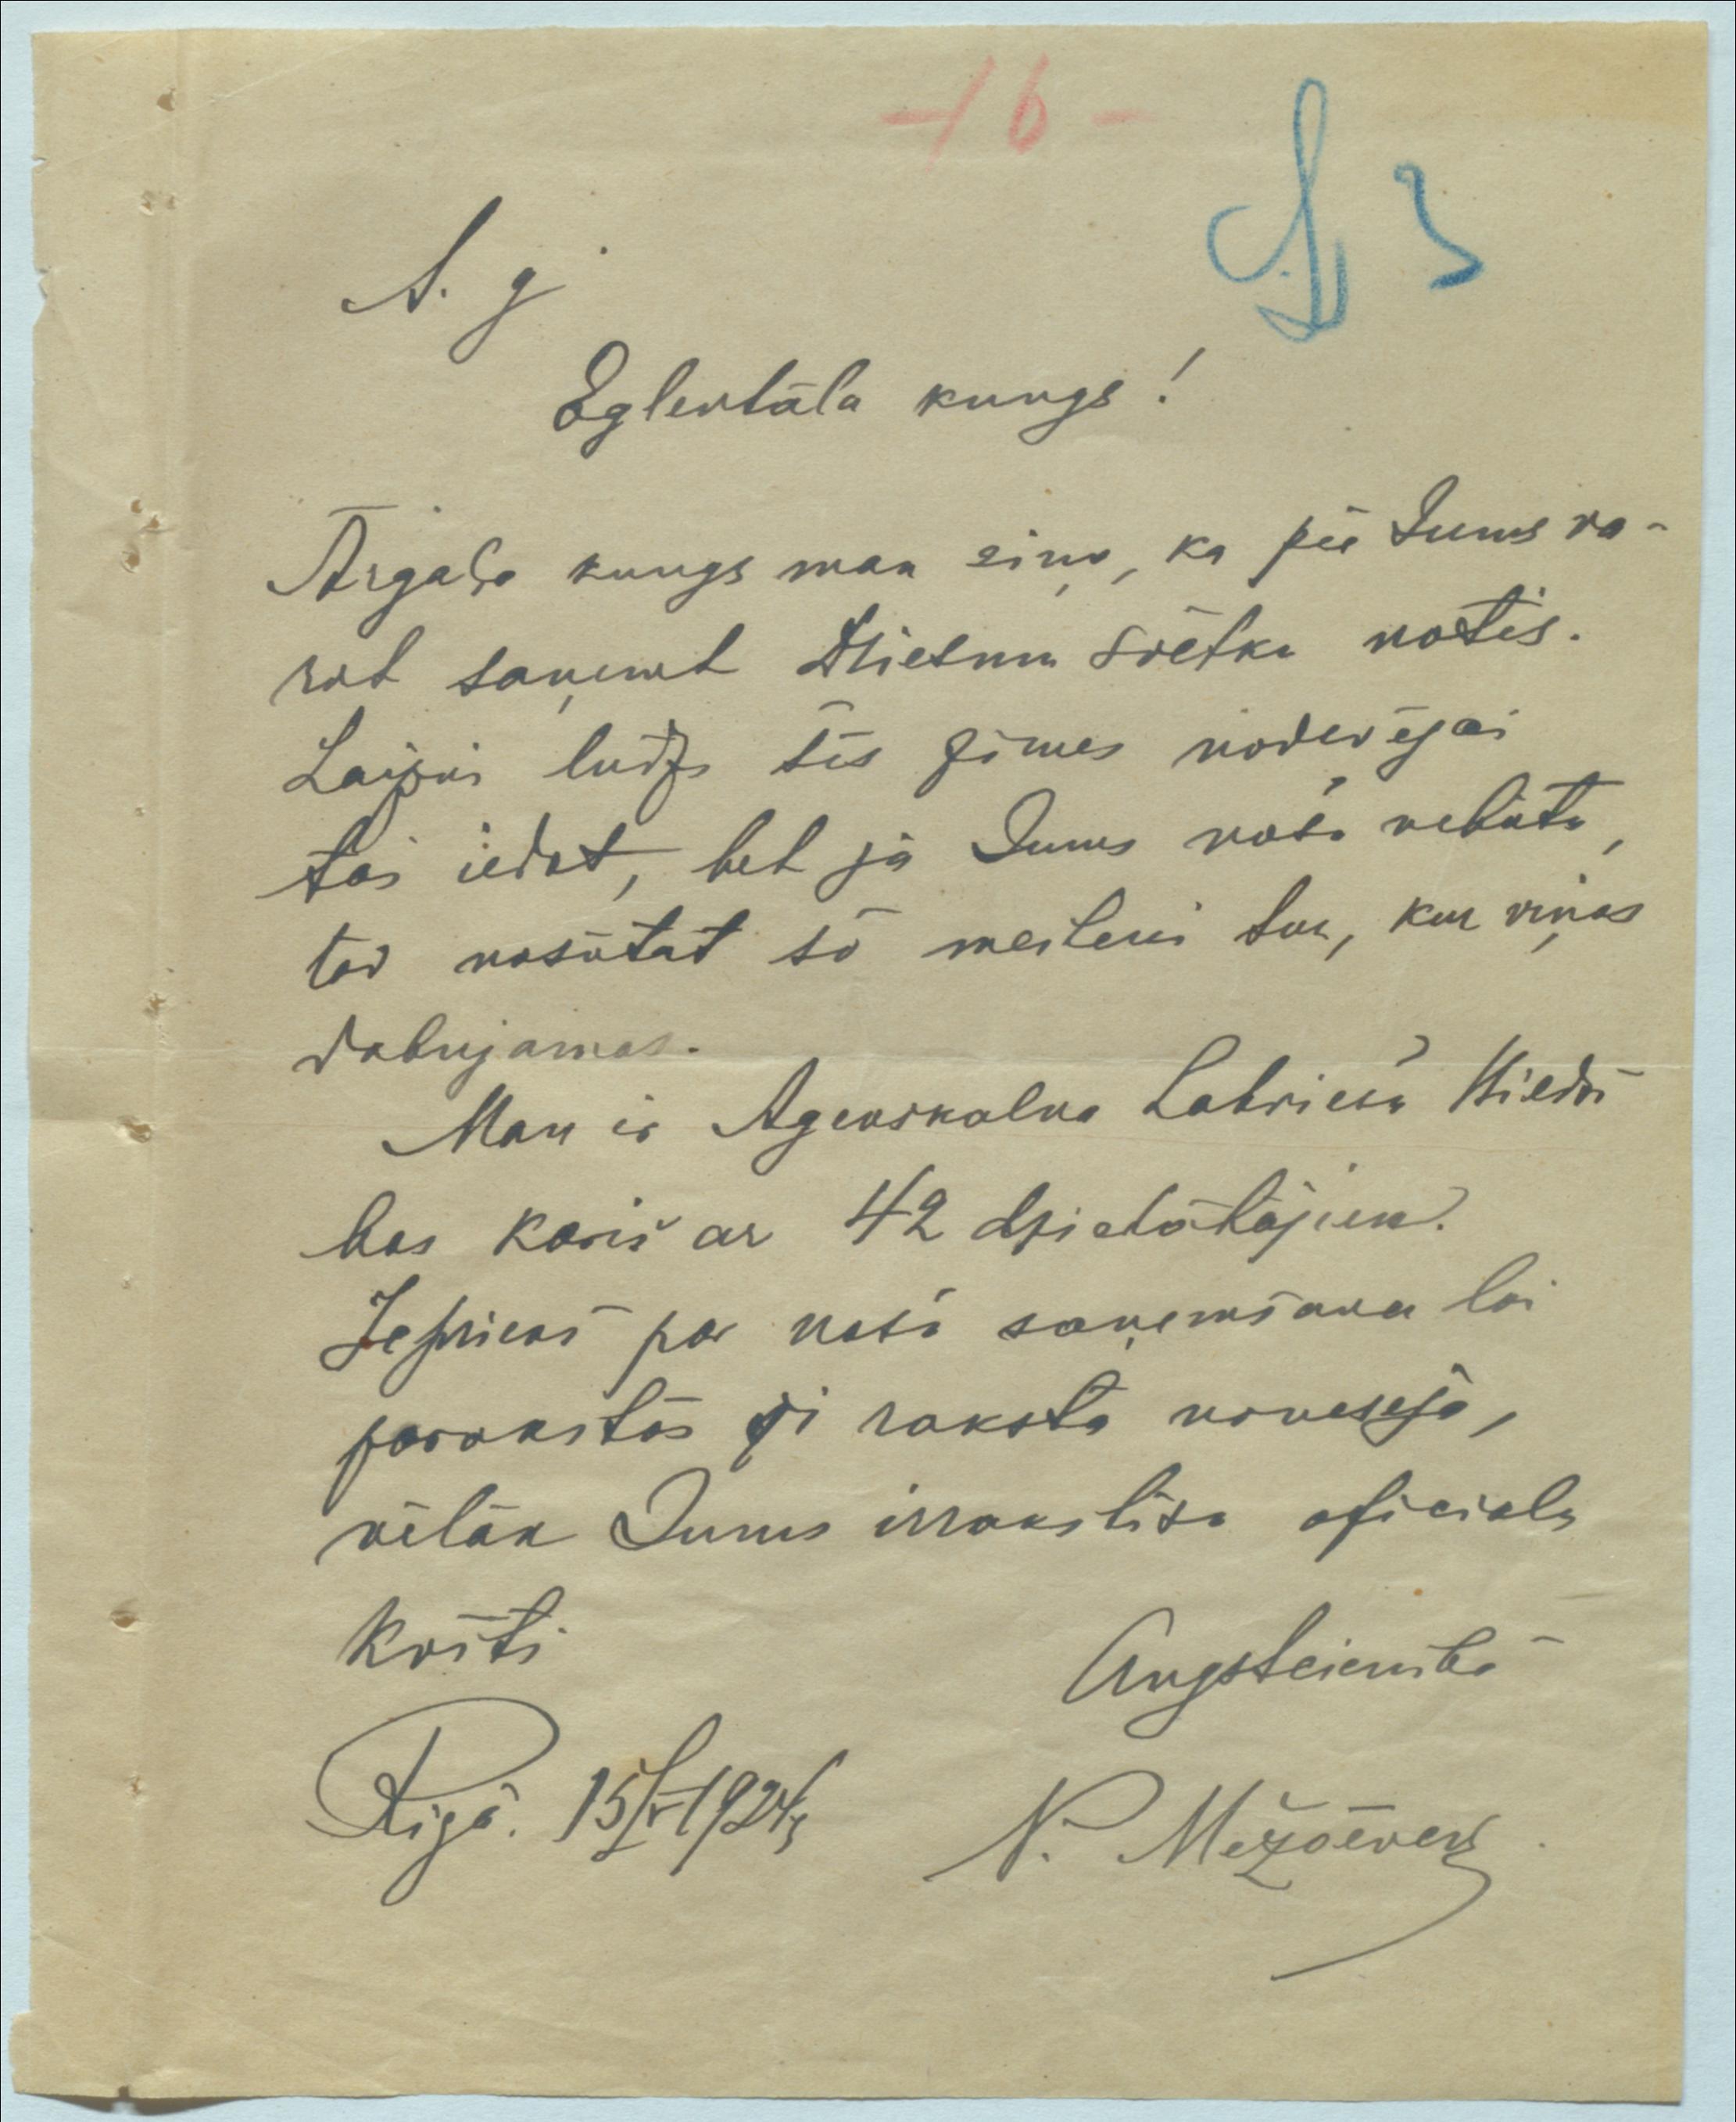 -16-
A. g.
Eglentāla kungs!
kungs man ziņo, ka pie Jums va-
rot saņemt Dziesmu svētku notis.
Laipni lūdzu šīs zīmes nodevējai
tās iedot, bet ja Jums nošu nebūtu,
tad nosūtat šo meiteni tur, kur viņas
dabujamas.
Man ir Agenskalna Labrieša Biedrī
bas koris ar 42 dziedātājiem.
Iepriekš par nošu saņemšanu lai
parakstās šī raksta nonesēja,
vēlāk Jums izrakstīšu oficialu
kvīti
Augstcienībā
Rīgā. 15/V 1924g
N. Mežoēvers